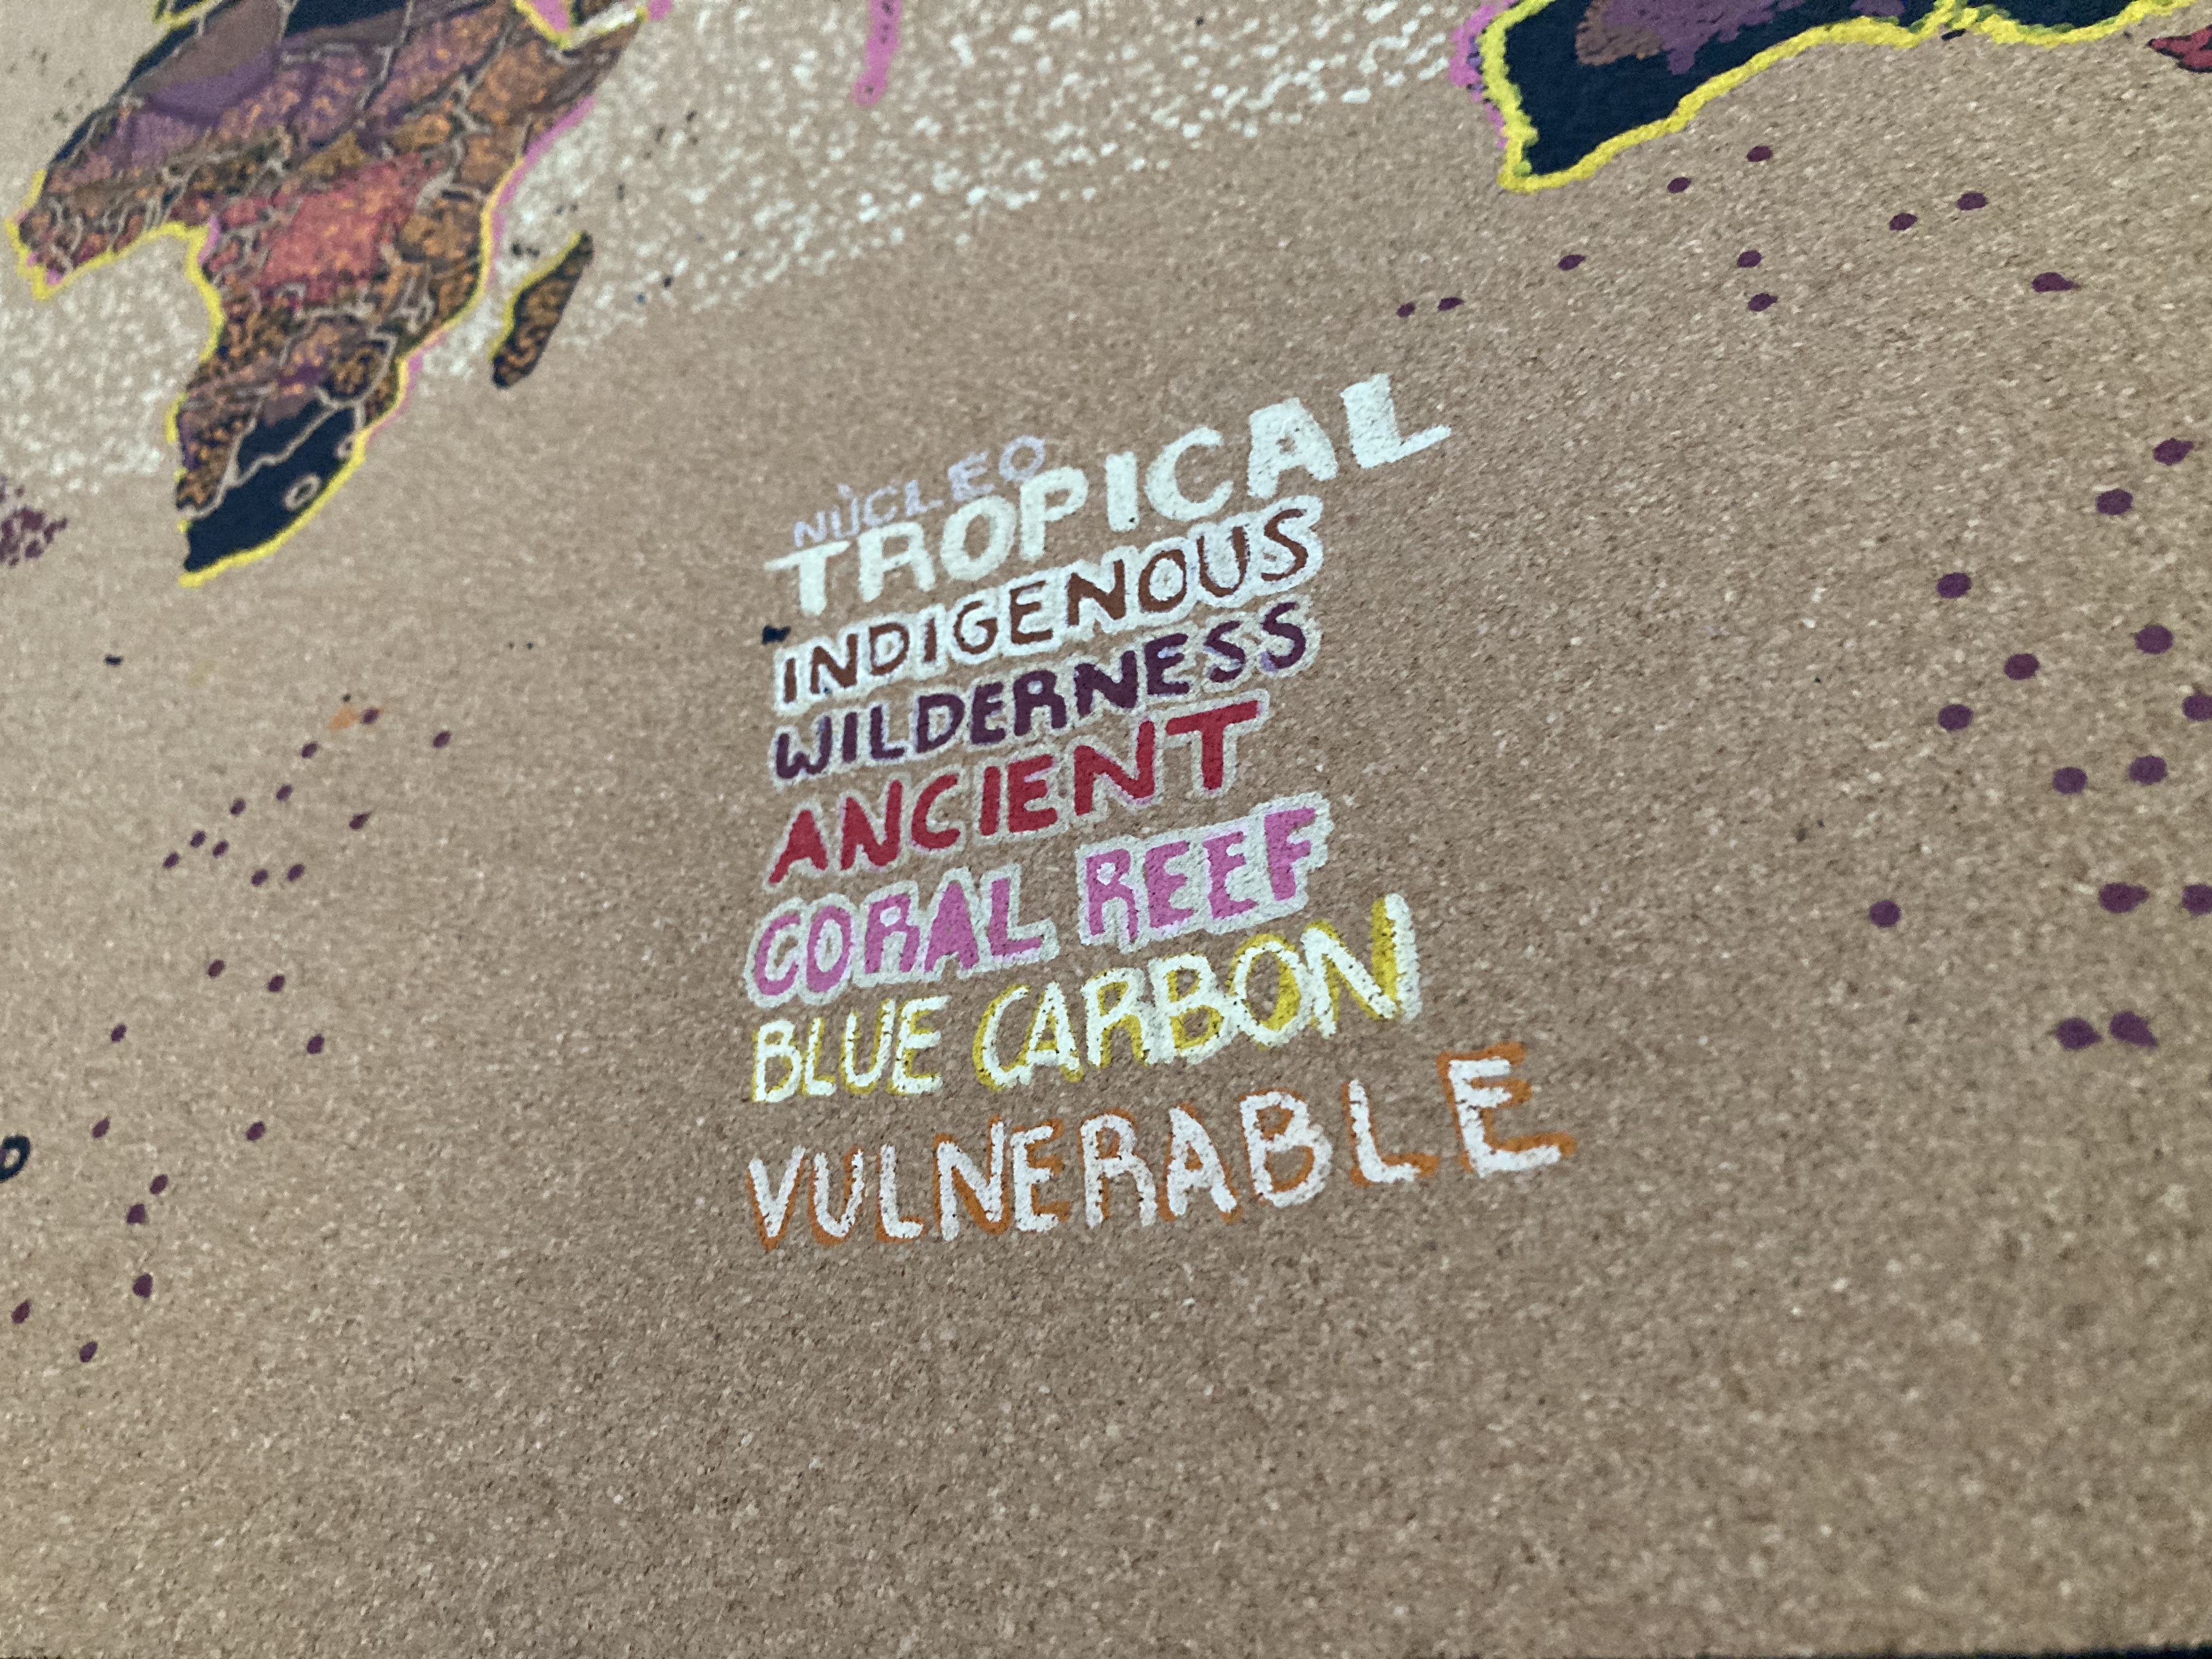 NÚCLEO
TROPICAL
INDIGENOUS
WILDERNESS
ANCIENT
CORAL REEF
BLUE CARBON
VULNERABLE